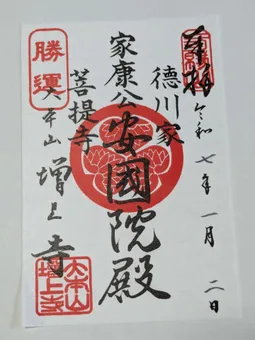 奉拝
令和七年一月二日
徳川家
家康公安國院殿
菩提寺
勝運
大本山
増上寺
大本山
増上寺